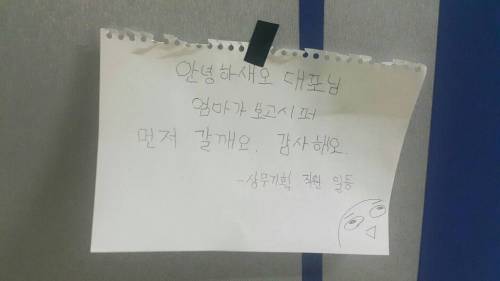 안녕하새오 대포님
엄마가 보고시퍼
먼저 갈깨요. 감사해오.
-상무기획 직원 일동